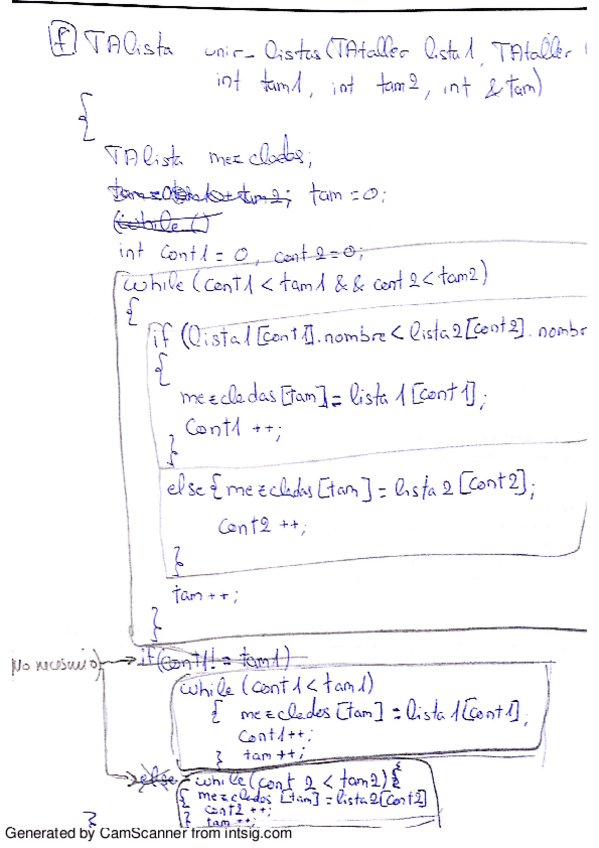 f TALista unir_listas(TAtaller lista1, TAtaller
int tam1, int tam2, int &tam)
{
TALista mezcladas;
tam=0;
(while ()
int cont1 = 0, cont2=0;
while (cont1 < tam1 && cont2 < tam2)
{
if (lista1[cont1].nombre < lista2[cont2].nombr
{
mezcladas[tam] = lista1[cont1];
cont1 ++;
}
else { mezcladas[tam] = lista2[cont2];
cont2 ++;
}
tam++;
}
No necesario → if(cont1!= tam1)
while (cont1 < tam1)
{ mezcladas[tam] = lista1[cont1];
cont1++;
} tam++;
else while(cont2 < tam2){
{ mezcladas [tam] = lista2[cont2]
cont2 ++;
} tam++;
}
Generated by CamScanner from intsig.com